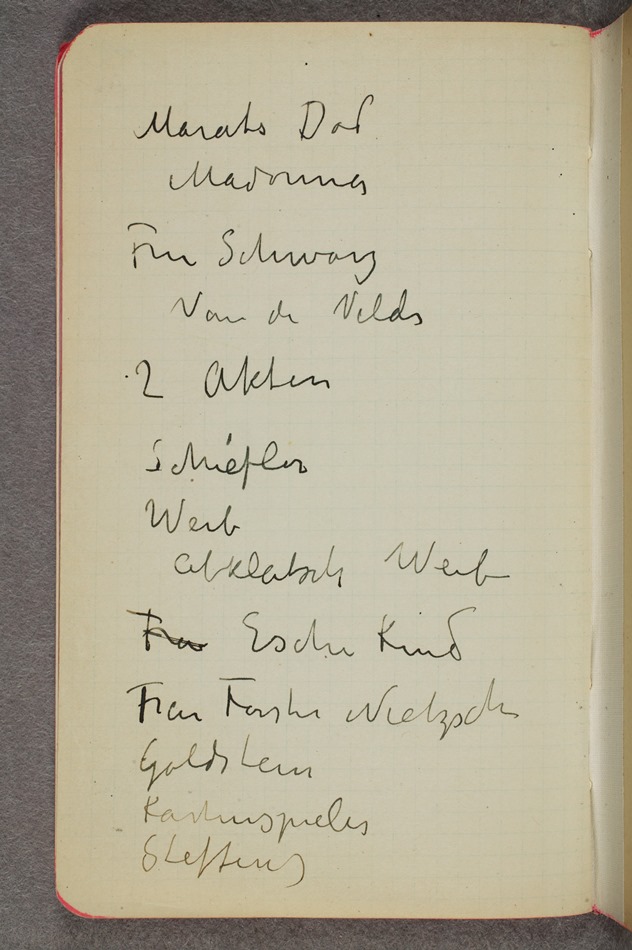 Marats Død
Madonna
Frau Schwarz
Van de Velde
2 Akten
Schiefler
Weib
abklatsch Weib
Frau Esche Kind
Frau Förster Nietzsche
Goldstein
Kartenspieler
Steffens